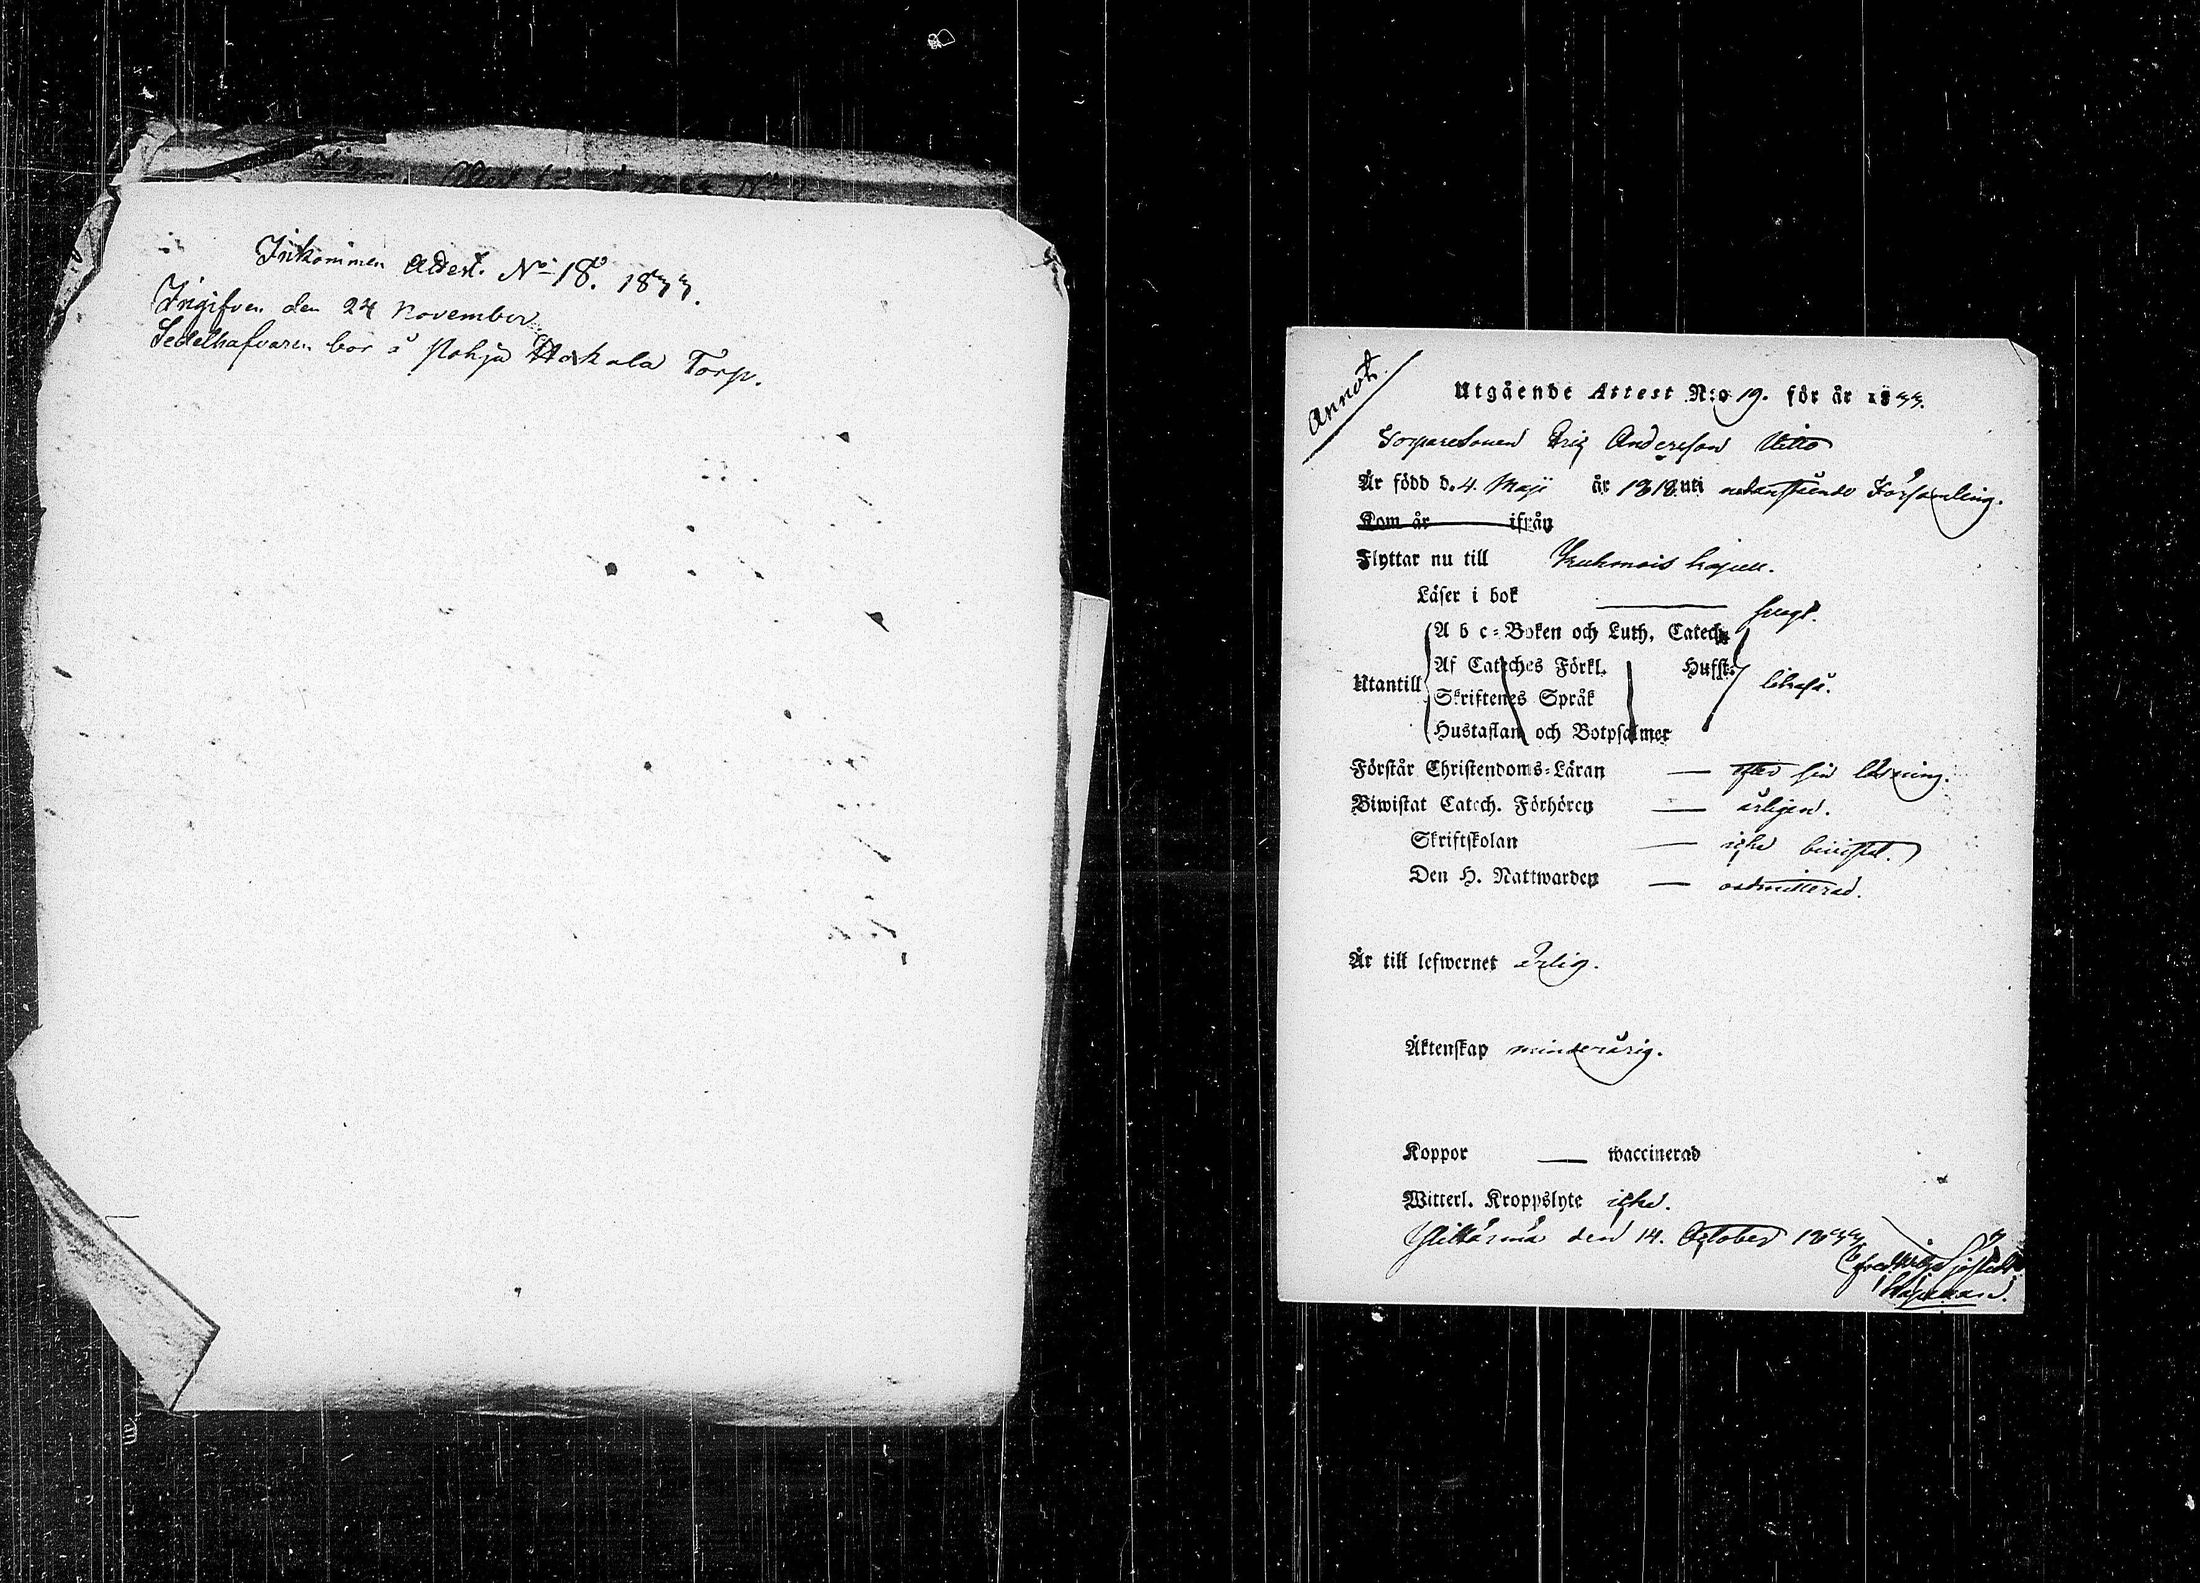 Inkommen Attest. No 18. 1833.
Ingifven den 24 November.
Sedelhafvaren bor å Pohja Hakala Torp.
Annot.
Utgående Attest N:o 19. för år 1833.
Torparesonen Eric Andersson
Är född d. 4. Maji år 1818 uti nedanstående Församling.
Kom år ifrån
Flyttar nu till Kuhmois Capell.
Läser i bok — svagt.
A b c-Boken och Luth. Catech.
Af Cateches Förkl. Hufst.
Utantill likaså.
Skriftenes Språk
Hustaflan och Botpsalmer
Förstår Christendoms-Läran — efter sin läsning.
Biwistat Catech. Förhören — årligen.
Skriftskolan — icke bivistat.
Den H. Nattwarden — oadmitterad.
Är till lefwernet ärlig.
Äktenskap minderårig.
Koppor — waccinerad
Witterl. Kroppslyte icke.
den 14. October 1833